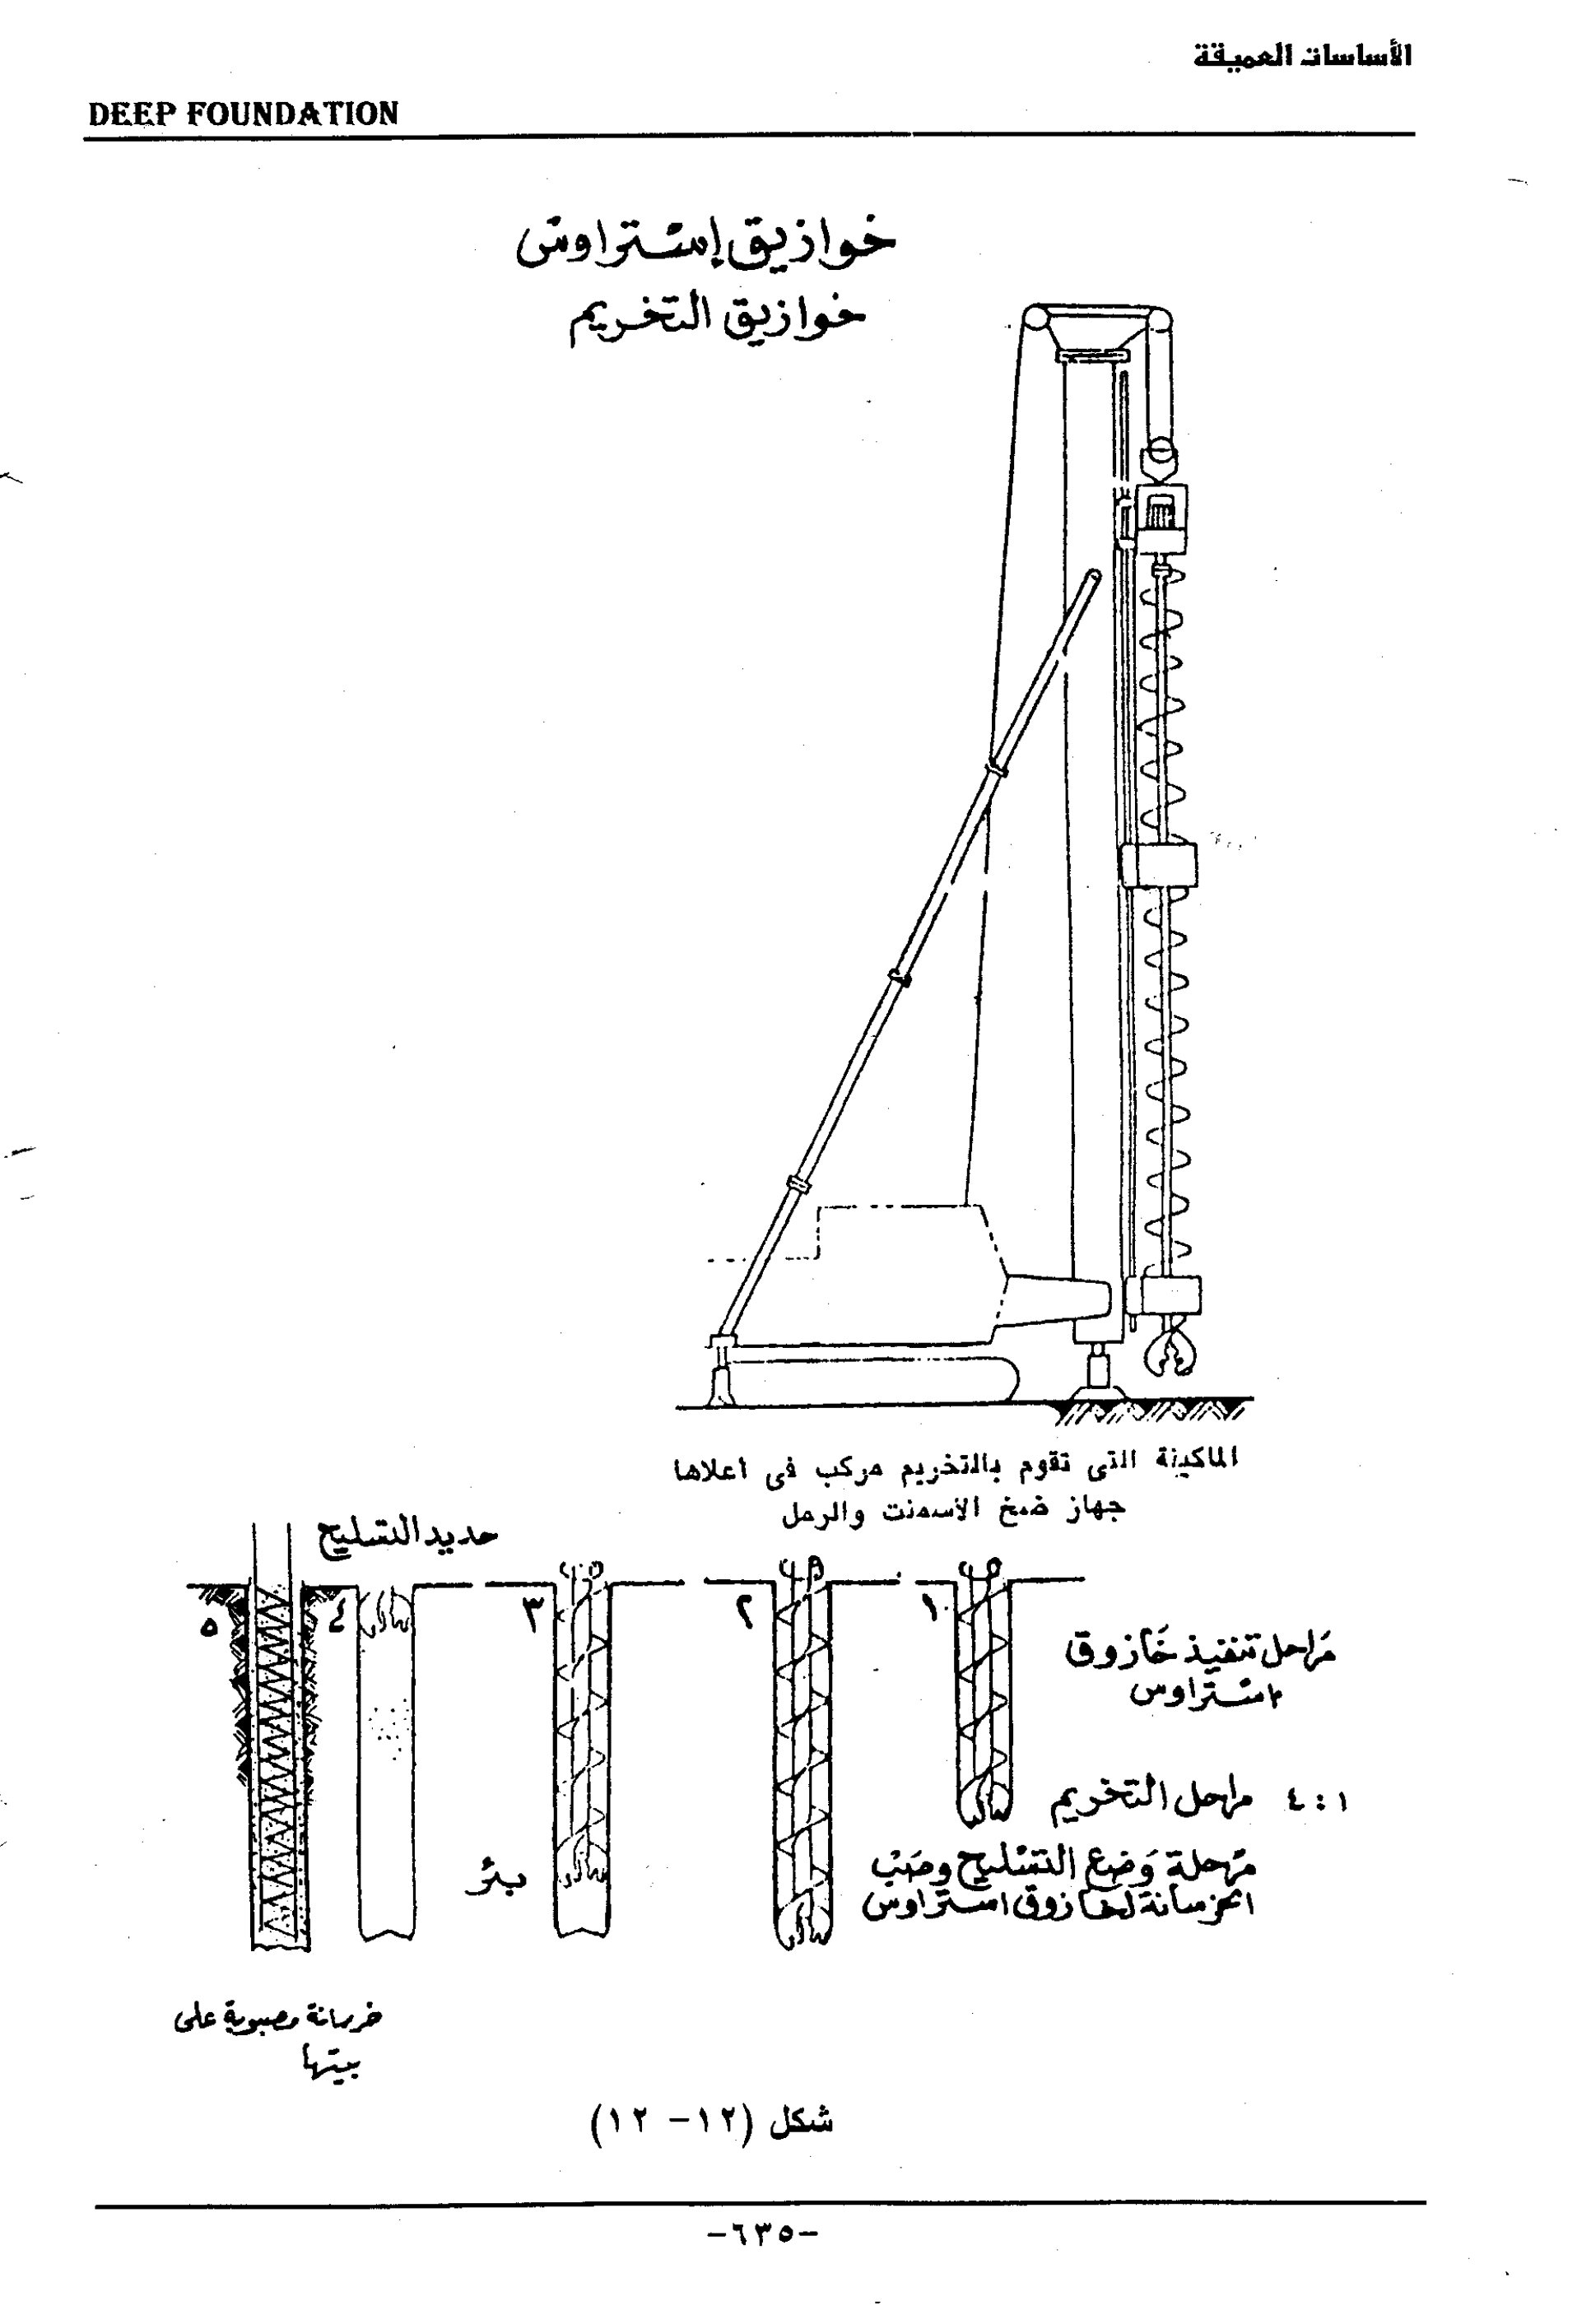 الأساسات العميقة
DEEP FOUNDATION
خوازيق إستراوس
خوازيق التخريم
الماكينة التى تقوم بالتخريم مركب فى اعلاها
جهاز ضخ الاسمنت والرمل
حديد التسليح
١
٢
٣
٤
٥
مراحل تنفيذ خازوق
استراوس
١ : ٤ مراحل التخريم
مرحلة وضع التسليح وصب
الخرسانة لخازوق استراوس
بئر
خرسانة مصبوبة على
بيتها
شكل (١٢ - ١٢)
-٦٣٥-